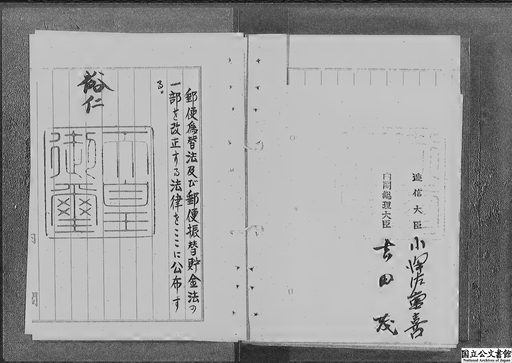 郵便為替法及び郵便振替貯金法の
一部を改正する法律をここに公布す
る。
裕仁
天皇
御璽
逓信大臣
内閣総理大臣 吉田茂
国立公文書館
National Archives of Japan